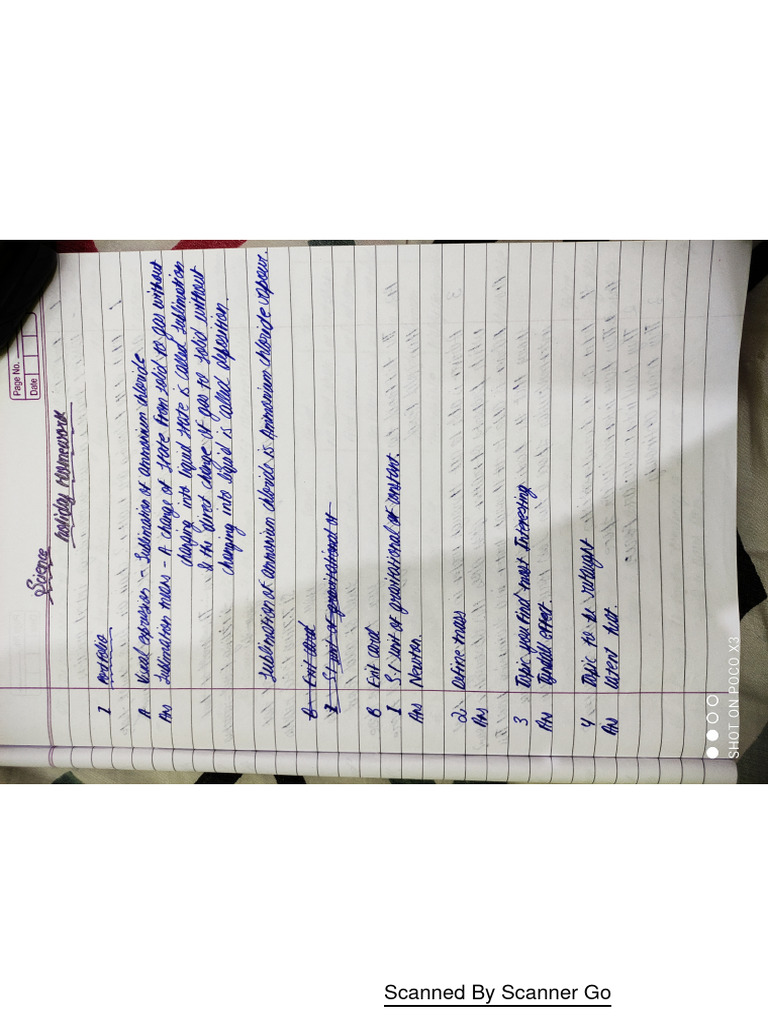 Page No.
Date
Science
Holiday Homework
1 Portfolio
A Visual expression - Sublimation of ammonium chloride
Ans Sublimation means - A change of state from solid to gas without
changing into liquid state is called sublimation
& the direct change of gas to solid without
changing into liquid is called deposition.
Sublimation of ammonium chloride is Ammonium chloride vapour.
B Exit card
1 S.I unit of gravitational
B Exit card
1 S.I unit of gravitational constant.
Ans Newton.
2 Define mass
Ans
3 Topic you find most Interesting
Ans Tyndall effect.
4 Topic to be retaught
Ans latent hat.
SHOT ON POCO X3
Scanned By Scanner Go